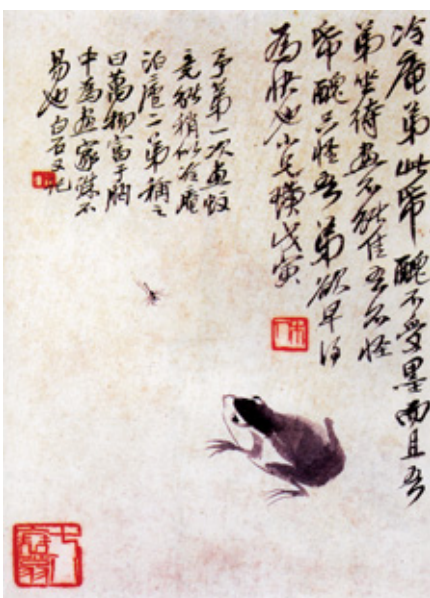 冷庵弟此帋醜不受墨而且吾
弟坐待畫不能佳吾不怪
帋醜只怪吾弟欲早得
為快也小兄璜戊寅
予第一次畫蚊
竟能稍似冷庵
泊廬二弟稱之
曰萬物富于胸
中為畫家殊不
易也白石又記